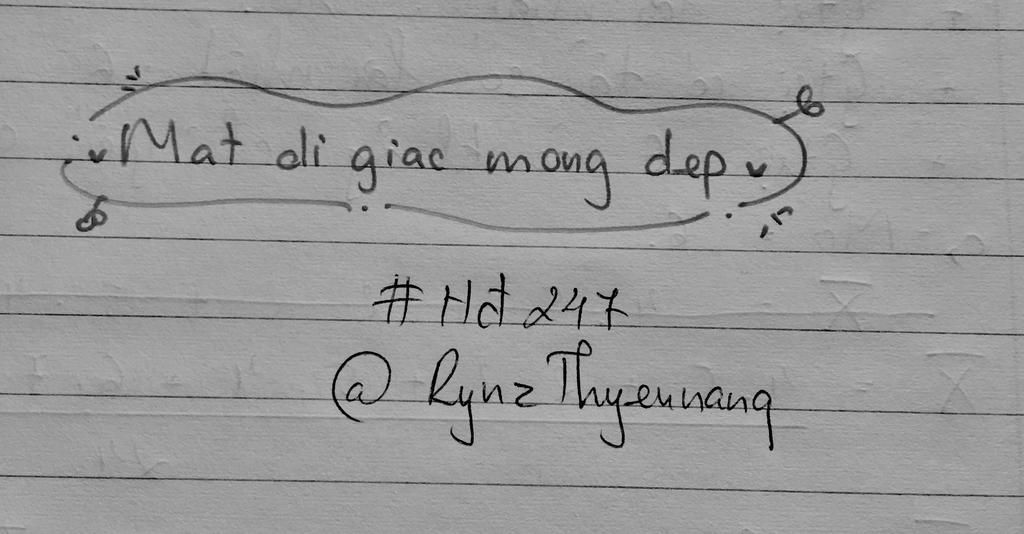 Mat di giac mong dep
# Hđ 247
@ Rynz Thyeunang